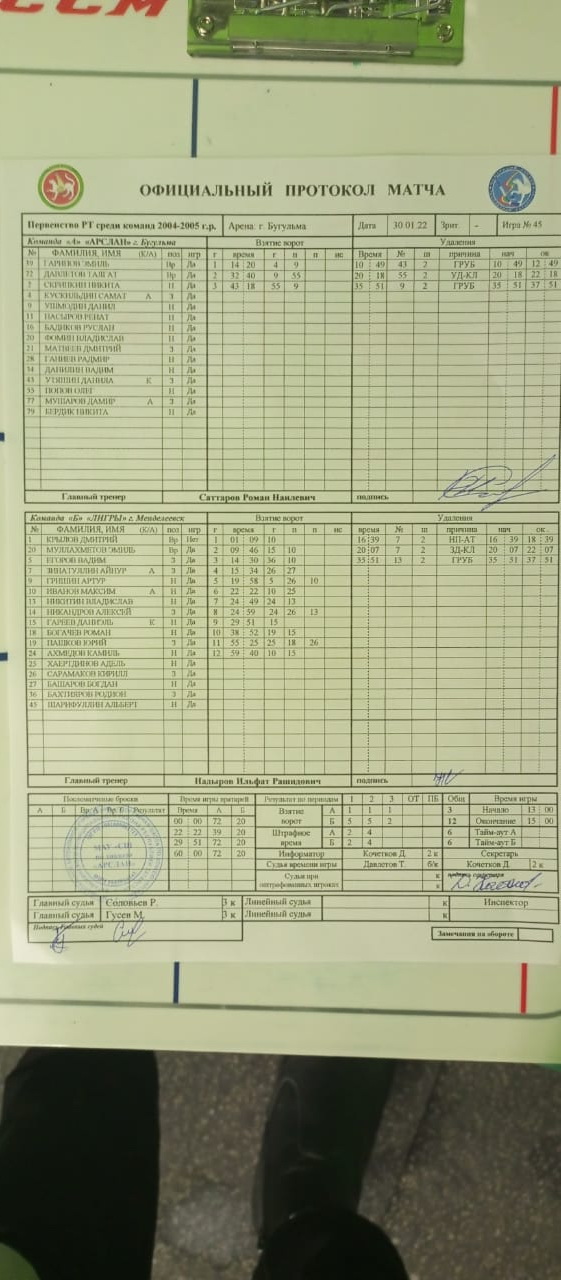 ССМ
ОФИЦИАЛЬНЫЙ ПРОТОКОЛ МАТЧА
Первенство РТ среди команд 2004-2005 г.р. Арена: г. Бугульма Дата 30.01.22 Зрит. - Игра № 45
Команда «А» «АРСЛАН» г. Бугульма Взятие ворот Удаления
№ ФАМИЛИЯ, ИМЯ (К/А) поз игр г время г п п ис Время № ш причина нач ок
ГАРИПОВ ЭМИЛЬ Вр Да 1 14 20 4 9 10 49 43 2 ГРУБ 10 49 12 49
ДАВЛЕТОВ ТАЛГАТ Вр Да 2 32 40 9 55 20 18 55 2 УД-КЛ 20 18 22 18
СКРИПКИН НИКИТА Н Да 3 43 18 55 9 35 51 9 2 ГРУБ 35 51 37 51
4 КУСКИЛЬДИН САМАТ А З Да
9 УШМОДИН ДАНИЛ Н Да
11 НАСЫРОВ РЕНАТ Н Да
16 БАДИКОВ РУСЛАН Н Да
20 ФОМИН ВЛАДИСЛАВ Н Да
21 МАТВЕЕВ ДМИТРИЙ З Да
28 ГАНИЕВ РАДМИР Н Да
34 ДАНИЛИН ВАДИМ Н Да
43 УТЯШИН ДАНИЛА К З Да
55 ПОПОВ ОЛЕГ Н Да
77 МУШАРОВ ДАМИР А З Да
79 БЕРДИК НИКИТА Н Да
Главный тренер Саттаров Роман Наилевич подпись
Команда «Б» «ЛИГРЫ» г. Менделеевск Взятие ворот Удаления
№ ФАМИЛИЯ, ИМЯ (К/А) поз игр г время г п п ис время № ш причина нач ок
1 КРЫЛОВ ДМИТРИЙ Вр Нет 1 01 09 10 16 39 7 2 НП-АТ 16 39 18 39
20 МУЛЛАХМЕТОВ ЭМИЛЬ Вр Да 2 09 46 15 10 20 07 7 2 ЗД-КЛ 20 07 22 07
5 ЕГОРОВ ВАДИМ З Да 3 14 30 36 10 35 51 13 2 ГРУБ 35 51 37 51
7 ЗИНАТУЛЛИН АЙНУР А З Да 4 15 34 26 27
9 ГРИШИН АРТУР Н Да 5 19 58 5 26 10
10 ИВАНОВ МАКСИМ А Н Да 6 22 22 10 25
13 НИКИТИН ВЛАДИСЛАВ Н Да 7 24 49 24 13
14 НИКАНДРОВ АЛЕКСЕЙ З Да 8 24 59 24 26 13
15 ГАРЕЕВ ДАНИЭЛЬ К Н Да 9 29 51 15
18 БОГАЧЕВ РОМАН Н Да 10 38 52 19 15
19 ПАШКОВ ЮРИЙ З Да 11 55 25 25 18 26
24 АХМЕДОВ КАМИЛЬ Н Да 12 59 40 10 15
25 ХАЕРТДИНОВ АДЕЛЬ Н Да
26 САРАМАКОВ КИРИЛЛ З Да
27 БАШАРОВ БОГДАН Н Да
36 БАХТИЯРОВ РОДИОН З Да
45 ШАРИФУЛЛИН АЛЬБЕРТ Н Да
Главный тренер Надыров Ильфат Рашидович подпись
Послематчевые броски Время игры вратарей Результат по периодам 1 2 3 ОТ ПБ Общ Время игры
А Б Вр. А Вр. Б Результат Время А Б Взятие А 1 1 1 3 Начало 13 00
00 00 72 20 ворот Б 5 5 2 12 Окончание 15 00
22 22 39 20 Штрафное А 2 4 6 Тайм-аут А
29 51 72 20 время Б 2 4 6 Тайм-аут Б
60 00 72 20 Информатор Кочетков Д. 2 к Секретарь
Судья времени игры Давлетов Т. б/к Кочетков Д. 2 к
Судья при к
оштрафованных игроках к
«АРСЛАН»
Главный судья Соловьев Р. 3 к Линейный судья к Инспектор
Главный судья Гусев М. 3 к Линейный судья к
Подписи главных судей
Замечания на обороте